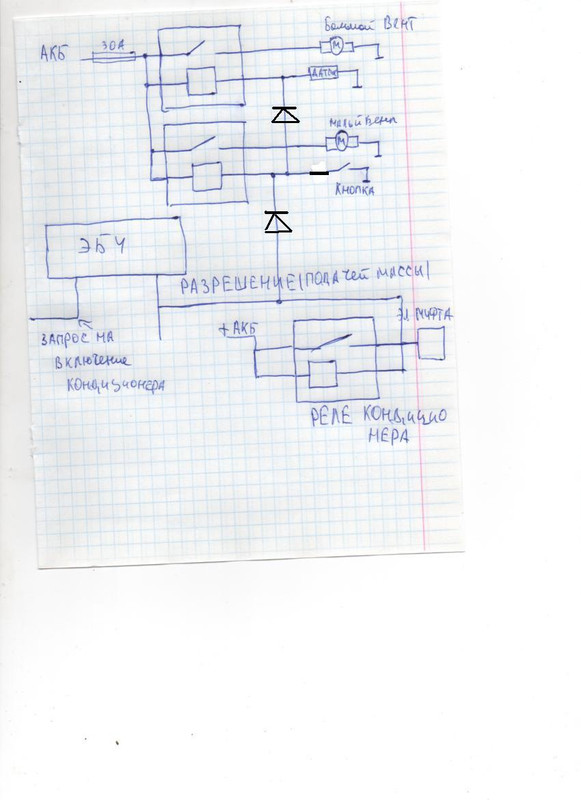 Большой Вент
АКБ
30А
М
ДАТЧ
малый Вент
М
КНОПКА
ЭБУ
РАЗРЕШЕНИЕ (ПОДАЧЕЙ МАССЫ)
ЗАПРОС НА
ВКЛЮЧЕНИЕ
КОНДИЦИОНЕРА
+АКБ
ЭЛ МУФТА
РЕЛЕ КОНДИЦИО
НЕРА